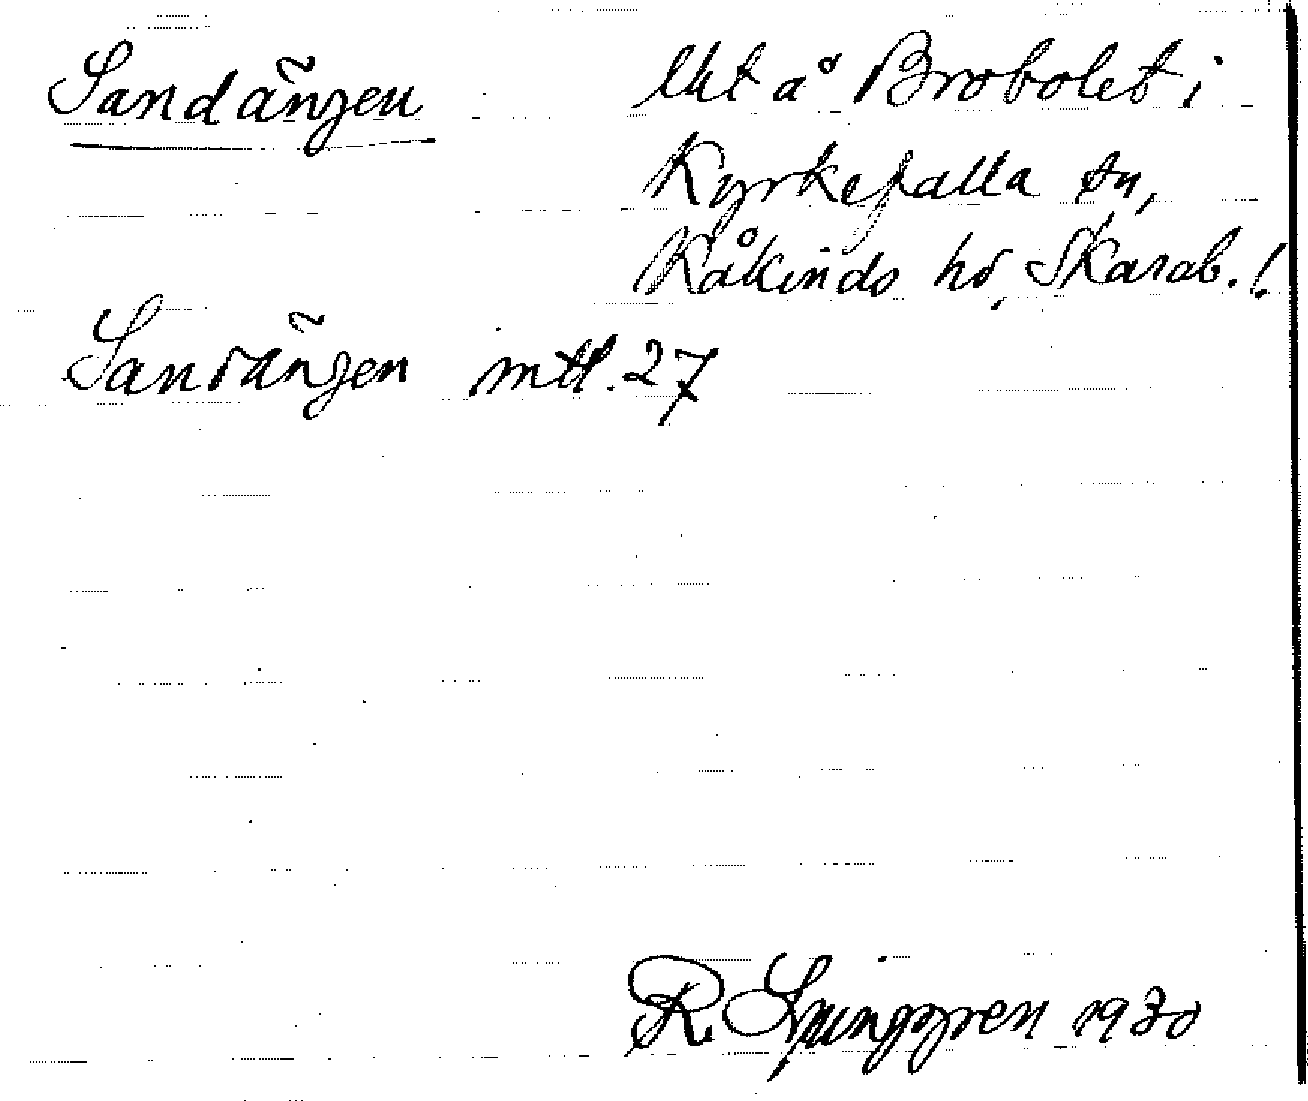 Sandängen lht å Brobolet i
Kyrkefalla sn,
Kåkinds hd, Skarab. l.
Sandängen mtl. 27
R. Ljunggren 1930